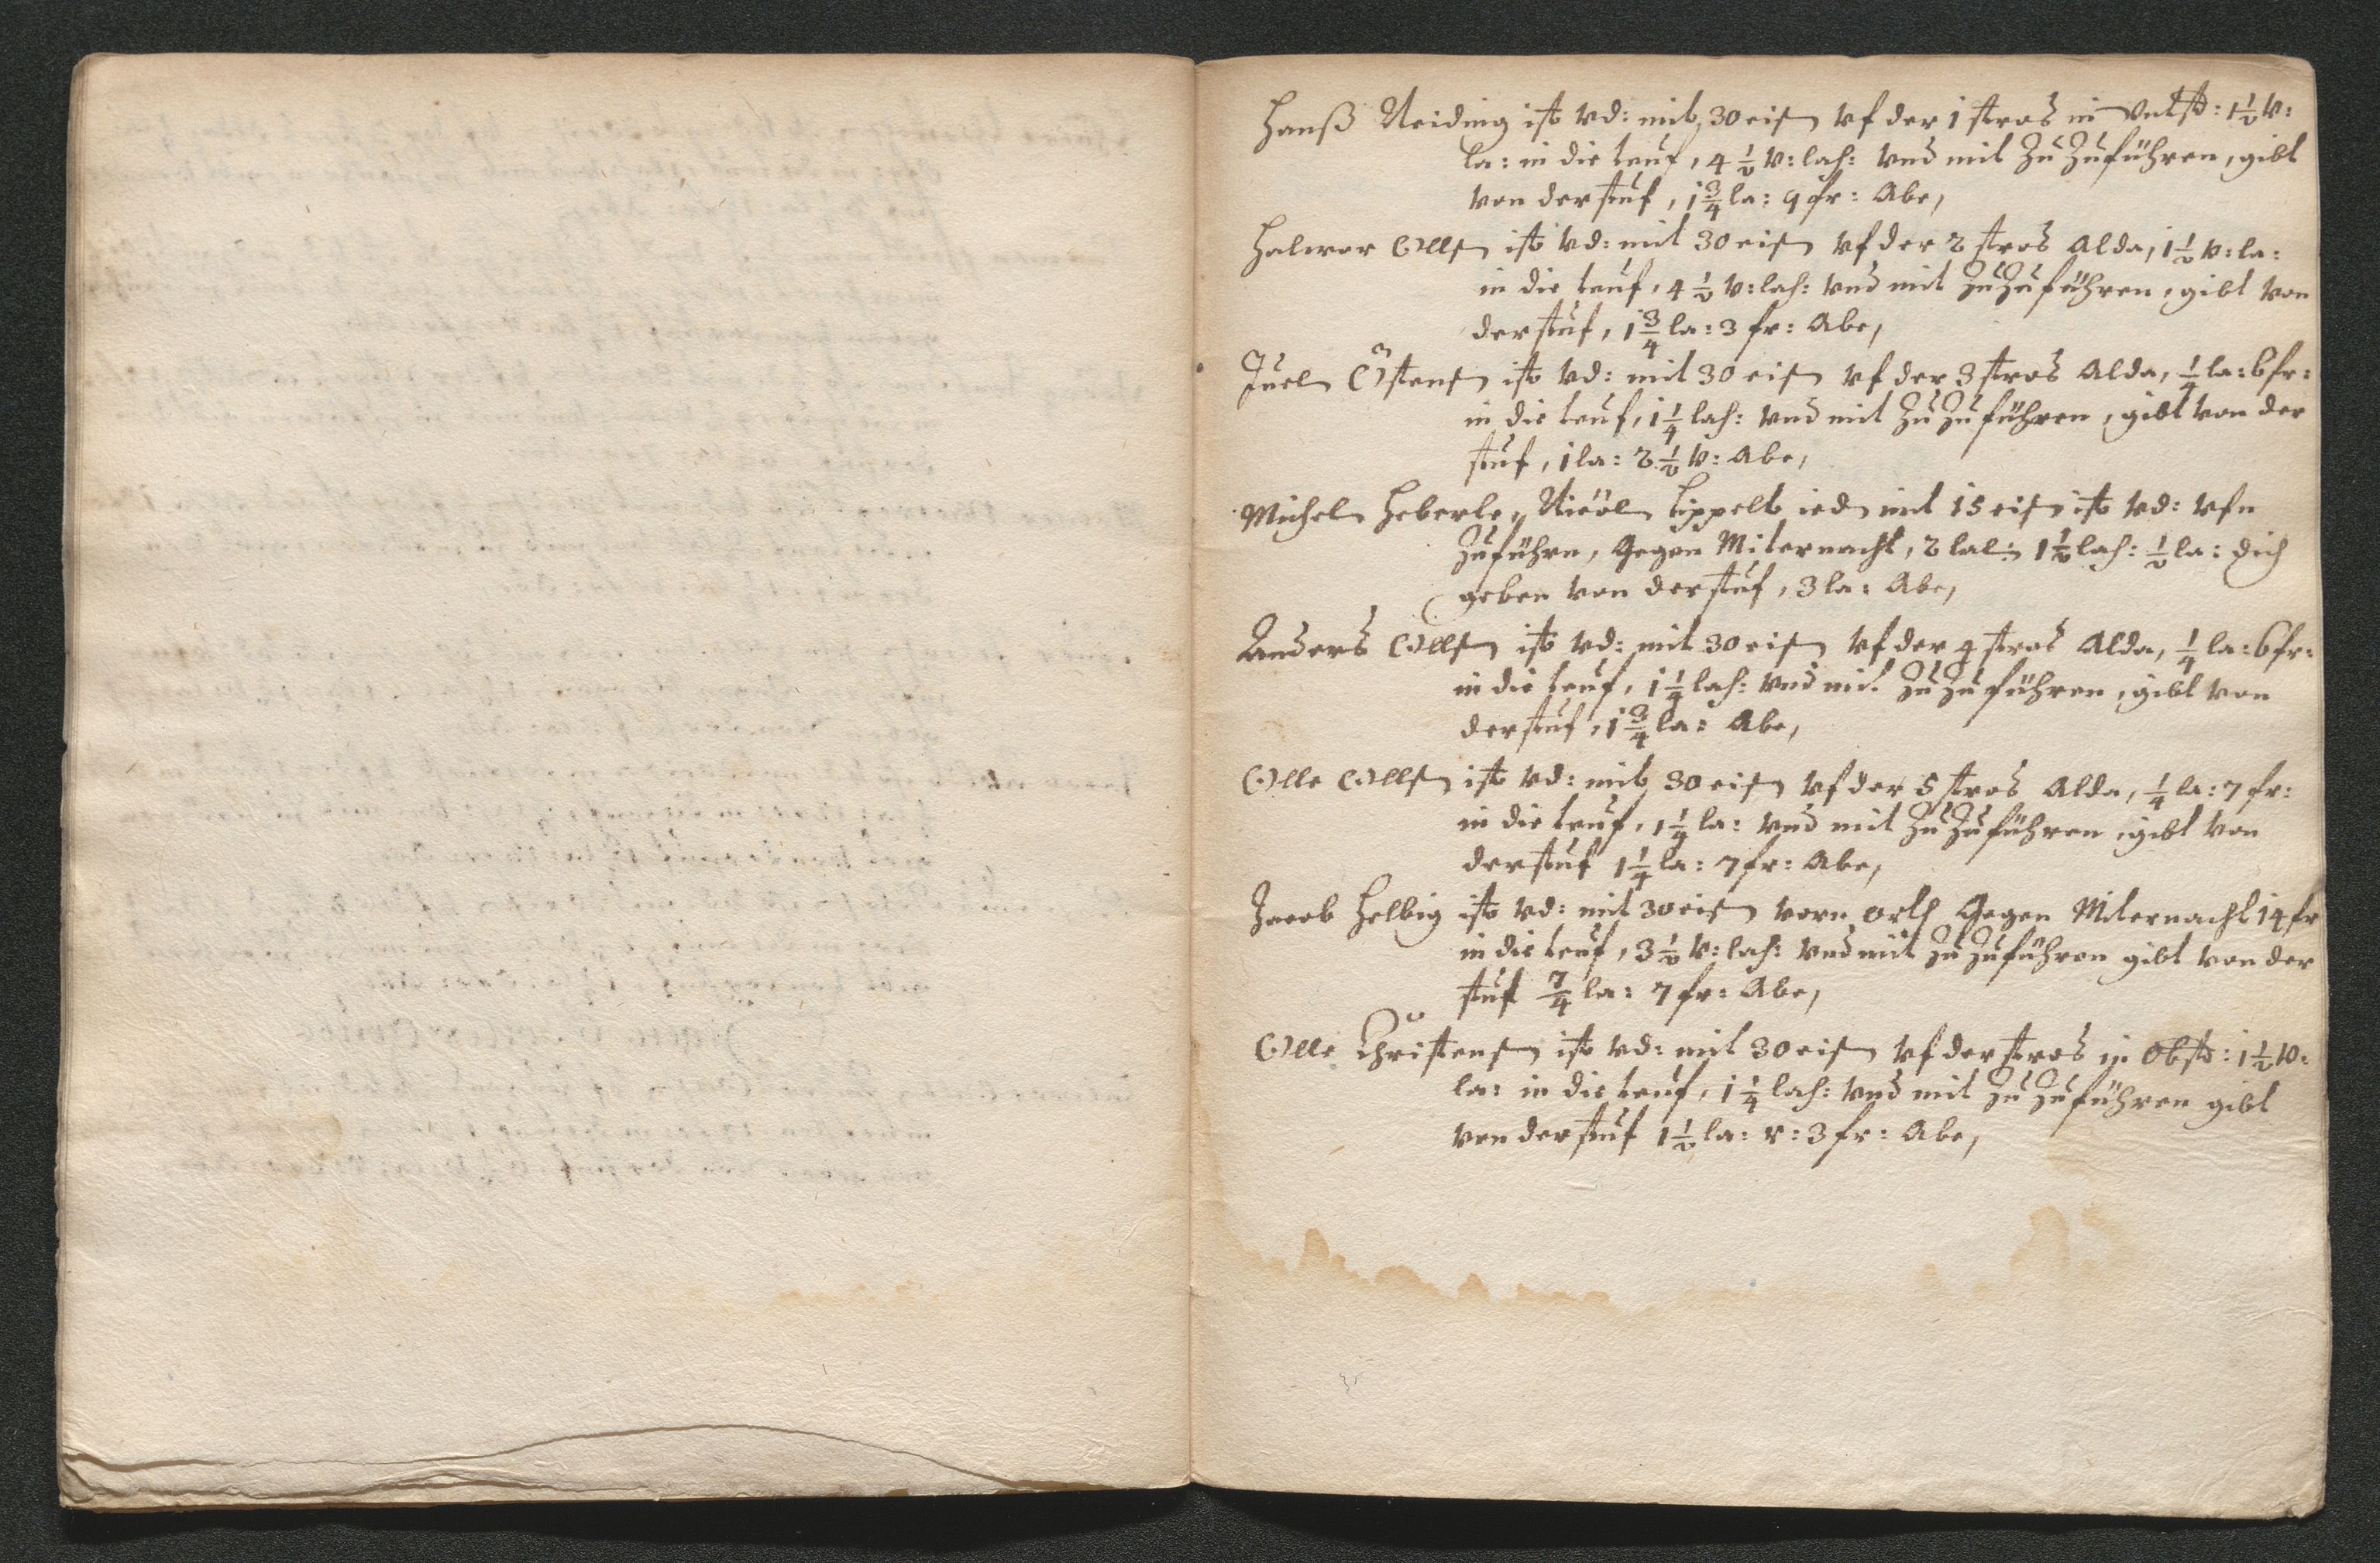 Hanß Neiding ist vd: mit 30 eisn vf der 1 stros in Vntst: 1½ v:
la: in die teuf, 4½ v: lah: vnd mit zu Zuführen, gibt
von der stuf, 1¾ la: 9 fr: Abe,
Halwor Ollsn ist vd: mit 30 eisn vf der 2 stros Alda, 1½ v: la:
in die teuf, 4½ v: lah: vnd mit zu Zuführen, gibt von
der stuf, 1¾ la: 3 fr: Abe,
Juel Östensn ist vd: mit 30 eisn vf der 3 stros Alda, ¼ la: 6 fr:
in die teuf, 1¼ lah: vnd mit zu Zuführen, gibt von der
stuf, 1 la: 2½ v: Abe,
Michel Heberle, Nicol Lippelt ied mit 15 eisn ist vd: vfn
Zuführn, Gegen Miternacht, 2 la 1½ lah: ½ la:
geben von der stuf, 3 la: Abe,
Anders Ollsn ist vd: mit 30 eisn vf der 4 stros Alda, ¼ la: 6 fr:
in die teuf, 1¼ lah: vnd mit zu Zuführen, gibt von
der stuf, 1¾ la: Abe,
Olle Ollsn ist vd: mit 30 eisn vf der 5 stros Alda, ¼ la: 7 fr:
in die teuf, 1¼ la: vnd mit zu Zuführen, gibt von
der stuf 1¼ la: 7 fr: Abe,
Jacob Helbig ist vd: mit 30 eisn vorn orth Gegen Miternacht 14 fr
in die teuf, 3½ v: lah: vnd mit zu Zuführen gibt von der
stuf 7/4 la: 7 fr: Abe,
Olle Christensn ist vd: mit 30 eisn vf der stros in Obst: 1½ v:
la: in die teuf, 1¼ lah: vnd mit zu Zuführen gibt
von der stuf 1½ la: v: 3 fr: Abe,